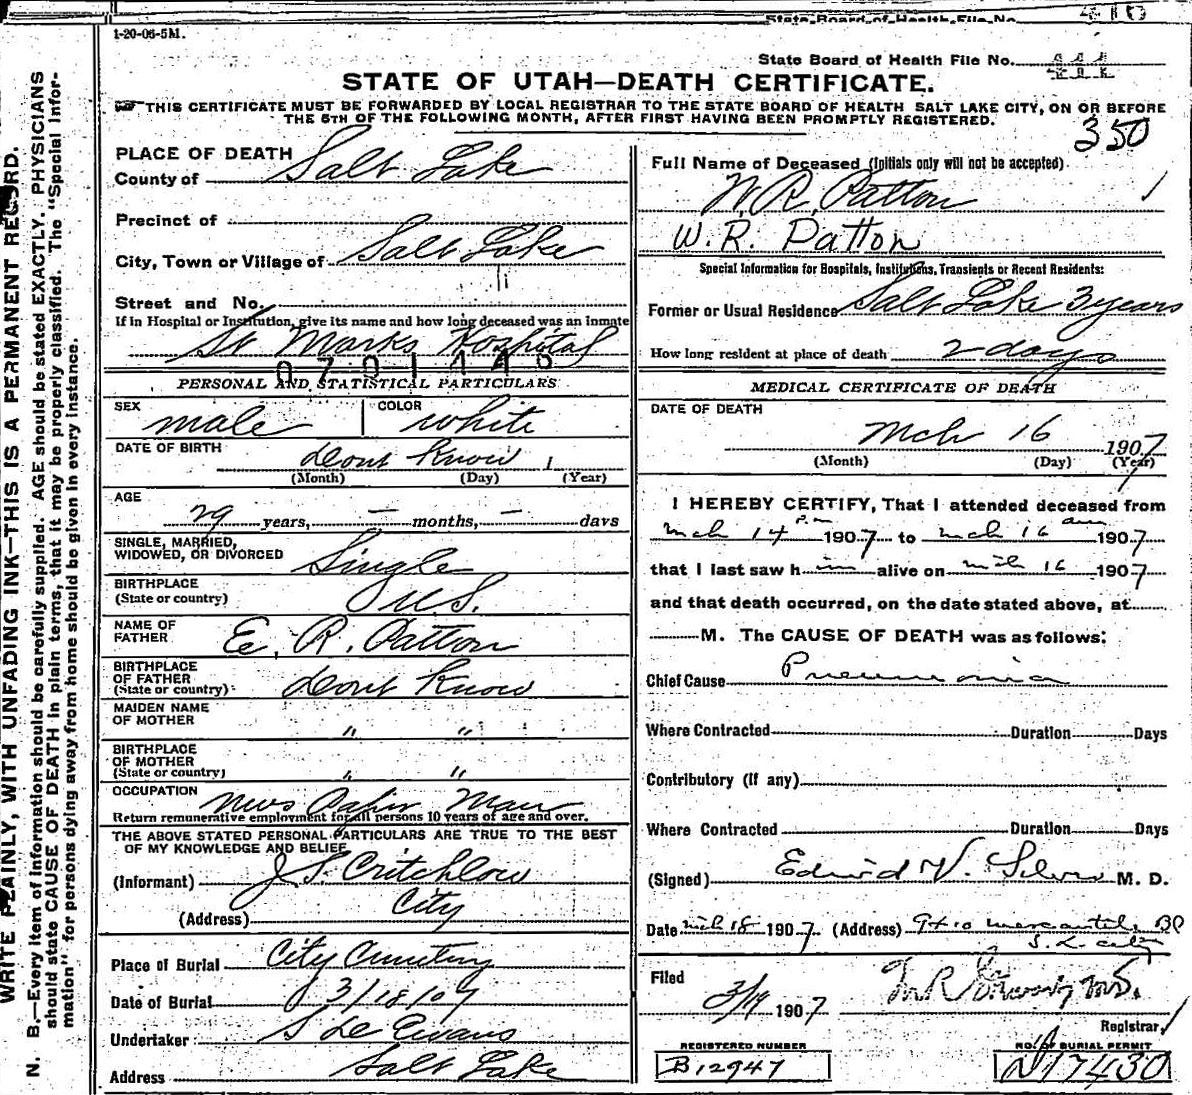 State Board of Health File No. 410
1-20-06-5M.
State Board of Health File No. 411
STATE OF UTAH—DEATH CERTIFICATE.
THIS CERTIFICATE MUST BE FORWARDED BY LOCAL REGISTRAR TO THE STATE BOARD OF HEALTH SALT LAKE CITY, ON OR BEFORE
THE 5TH OF THE FOLLOWING MONTH, AFTER FIRST HAVING BEEN PROMPTLY REGISTERED.
350
WRITE PLAINLY, WITH UNFADING INK—THIS IS A PERMANENT RECORD.
N. B.—Every item of information should be carefully supplied. AGE should be stated EXACTLY. PHYSICIANS
should state CAUSE OF DEATH in plain terms, that it may be properly classified. The "Special Infor-
mation" for persons dying away from home should be given in every instance.
PLACE OF DEATH
County of Salt Lake
Precinct of
City, Town or Village of Salt Lake
Street and No.
If in Hospital or Institution, give its name and how long deceased was an inmate
St Marks Hospital
0701140
PERSONAL AND STATISTICAL PARTICULARS
SEX male COLOR white
DATE OF BIRTH dont know 1
(Month) (Day) (Year)
AGE
29 years, – months, – days
SINGLE, MARRIED,
WIDOWED, OR DIVORCED Single
BIRTHPLACE
(State or country) U.S.
NAME OF
FATHER E. R. Patton
BIRTHPLACE
OF FATHER
(State or country) dont know
MAIDEN NAME
OF MOTHER " "
BIRTHPLACE
OF MOTHER
(State or country) " "
OCCUPATION News Paper Man
Return remunerative employment for all persons 10 years of age and over.
THE ABOVE STATED PERSONAL PARTICULARS ARE TRUE TO THE BEST
OF MY KNOWLEDGE AND BELIEF
(Informant) J S. Critchlow
(Address) City
Place of Burial City Cemetery
Date of Burial 3/18/07
Undertaker S D Evans
Address Salt Lake
Full Name of Deceased (Initials only will not be accepted)
W. R. Patton
W. R. Patton
Special Information for Hospitals, Institutions, Transients or Recent Residents:
Former or Usual Residence Salt Lake 3 years
How long resident at place of death 2 days
MEDICAL CERTIFICATE OF DEATH
DATE OF DEATH
Mch 16 1907
(Month) (Day) (Year)
I HEREBY CERTIFY, That I attended deceased from
mch 14 p.m 1907 to mch 16 am 1907
that I last saw him alive on mch 16 1907
and that death occurred, on the date stated above, at
M. The CAUSE OF DEATH was as follows:
Chief Cause Pneumonia
Where Contracted Duration Days
Contributory (if any)
Where Contracted Duration Days
(Signed) Edwid V. Silver M. D.
Date Mch 18 1907. (Address) 9 & 10 mercantile
S. L. City
Filed
3/19 1907
Registrar
REGISTERED NUMBER
B12947
NO. OF BURIAL PERMIT
N17430